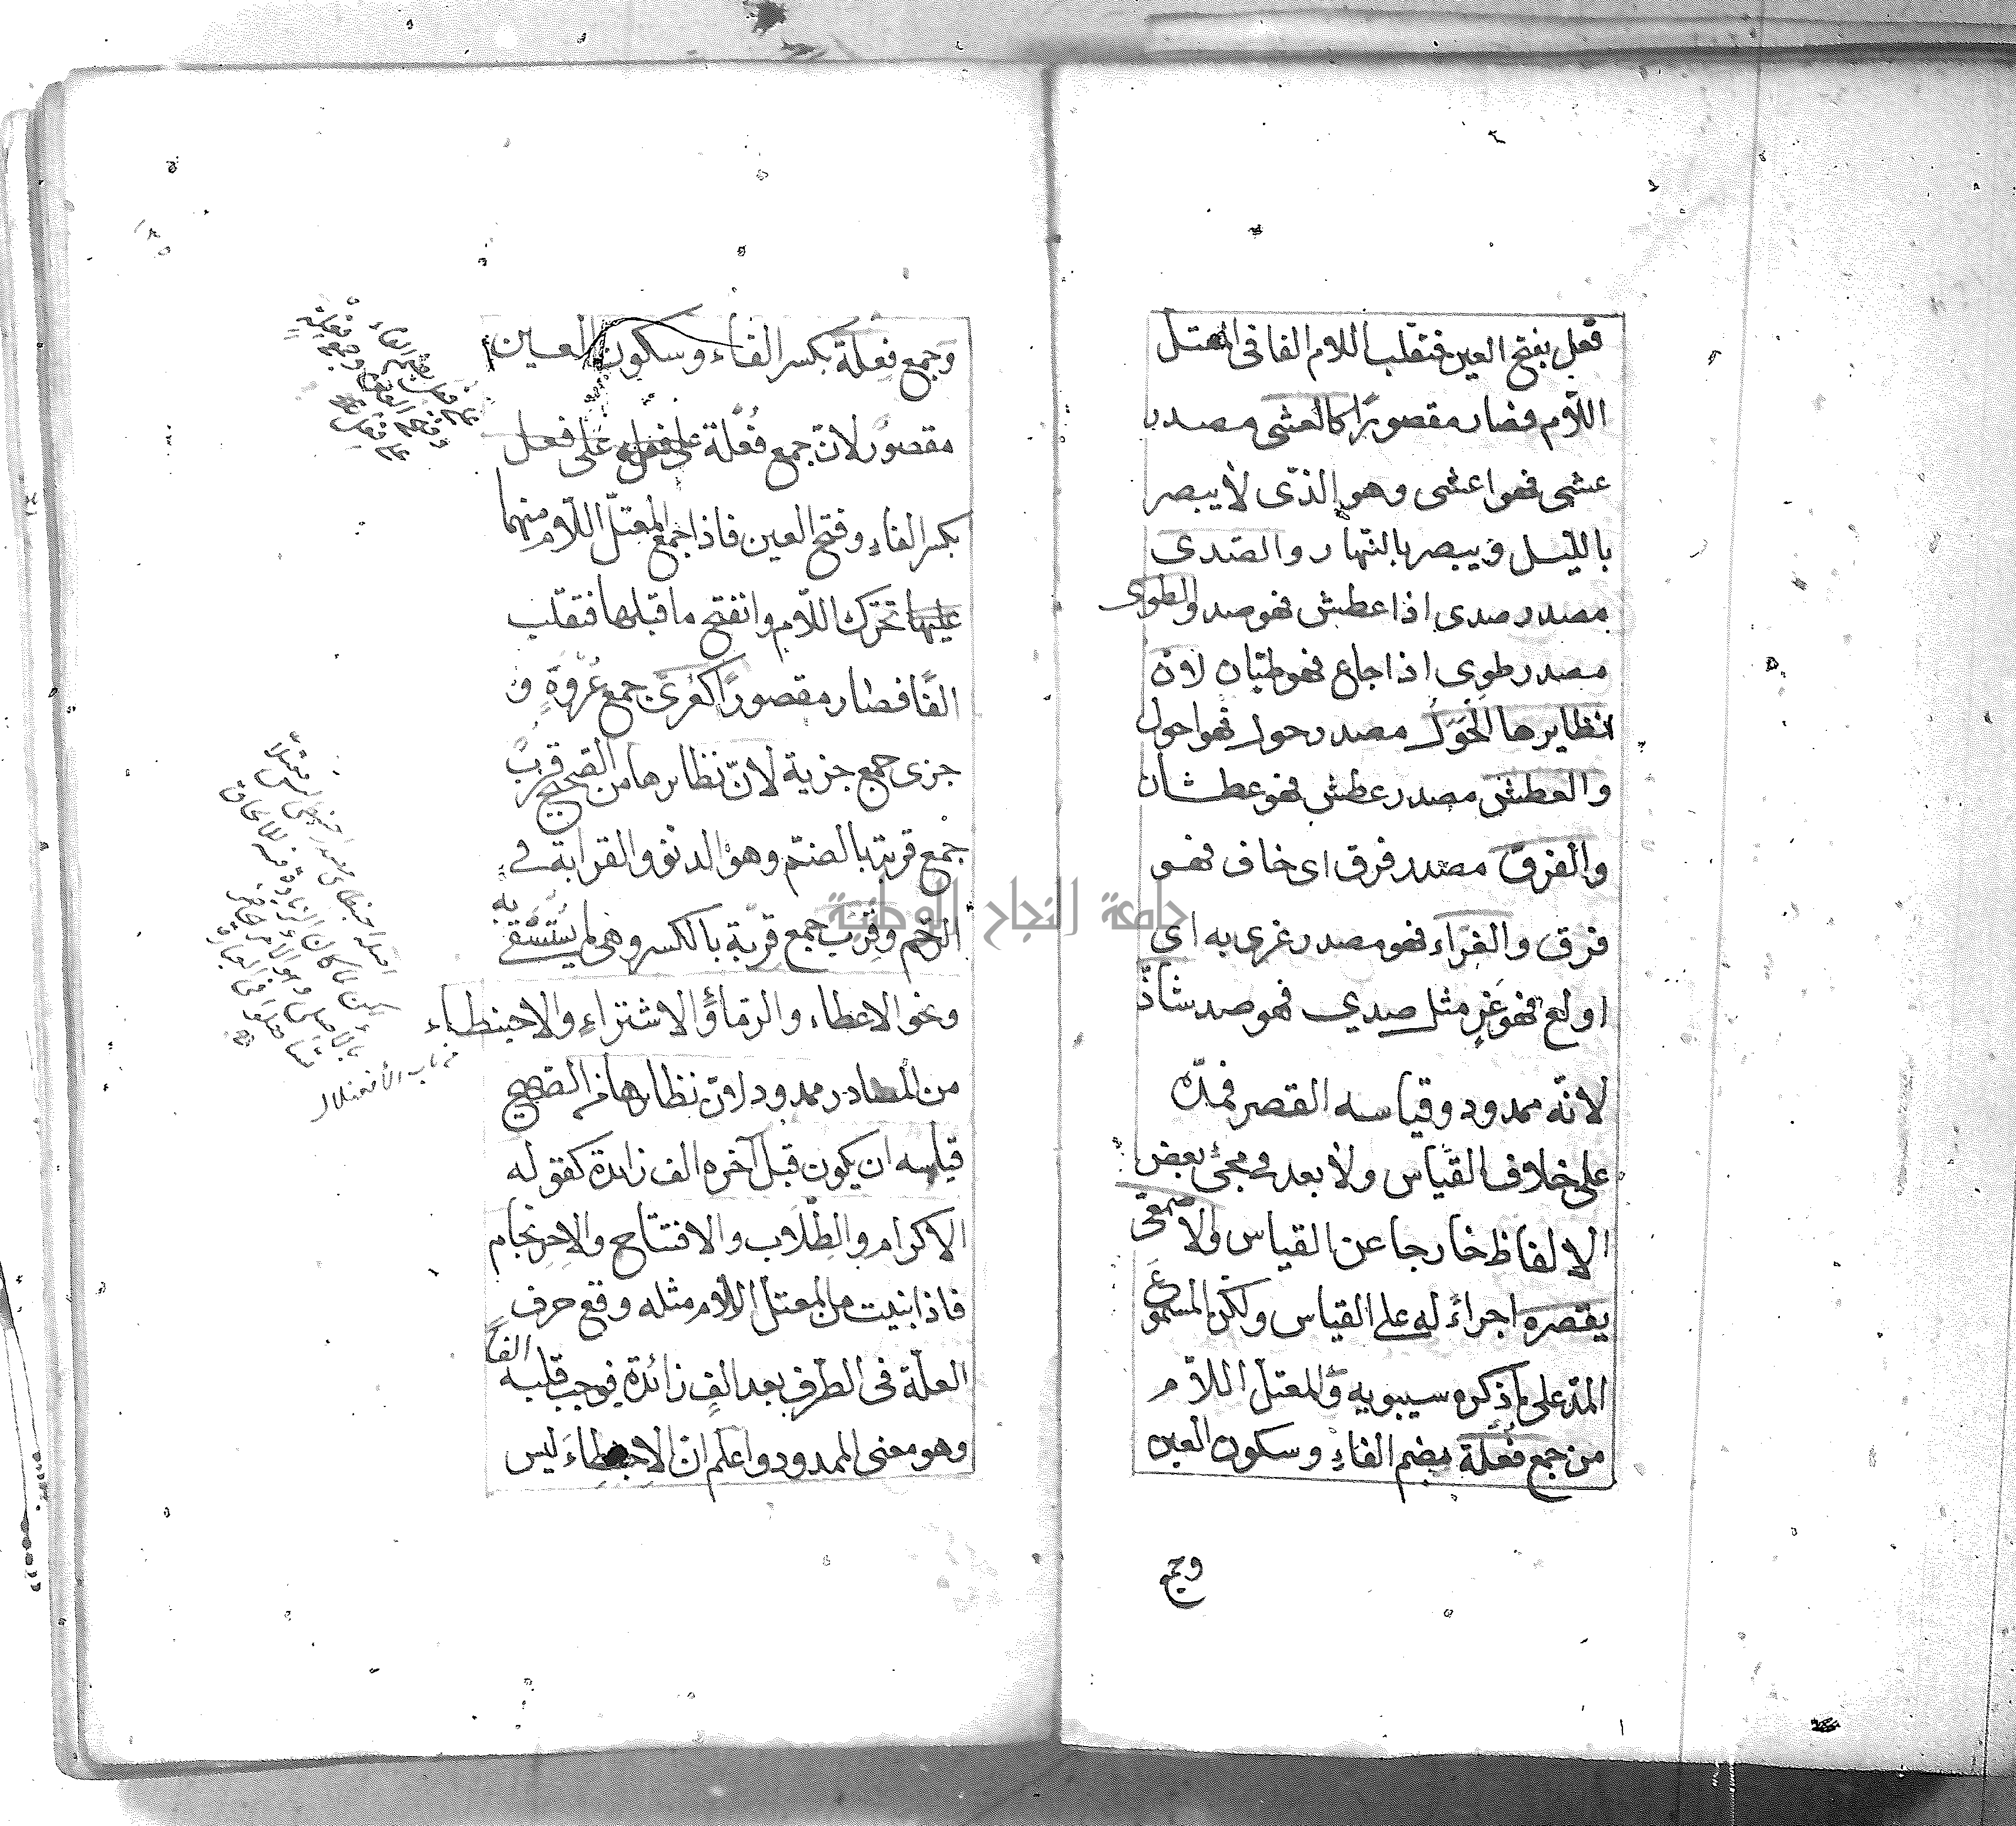 فعل بفتح العين فتقلب اللام الفا فى المعتل
اللآم فصار مقصورًا كالعشى مصدر
عشى فهو اعشى وهو الذّى لا يبصر
بالليّل ويبصر بالنّهار والصّدى
مصدر صدى اذا عطش فهو صد والطوى
مصدر طوى اذا جاع فهو طيّان لانّ
نظايرها الحَوَلُ مصدر حول فهو احول
والعطش مصدر عطش فهو عطشان
والفرق مصدر فرق اى خاف فهو
فرق والغرّاء فهو مصدر غرى به اى
اولع فهو غرٍ مثل صدي فهو صد شاذّ
لانّه ممدود وقياسه القصر فمدّه
على خلاف القياس ولا بعد فى مجئ بعض
الالفاظ خارجا عن القياس والاصمعى
يقصره اجراءً له على القياس ولكن المسموع
المدّ على ما ذكره سيبويه والمعتل اللآم
من جمع فُعْلة بضم الفاءِ وسكون العين
وجمع
وَجمع فِعلة بكسر الفاء وسكون العين
مقصُور لانّ جمع فُعْلة على فعل
بكسر الفاءِ وفتح العين فاذا جمع المعتلّ اللآم منهما
عليها تحرّك اللّام وانفتح ما قبلها فتقلب
الفًا فصار مقصورًا كعُرىً جمع عُرْوَةٍ و
جزى جمع جزية لانّ نظايرها من الصّحيح قُرَبٌ
جمع قربة بالضّم وهو الدنوّ والقرابة فى
الرّحم وقِرَب جمع قربة بالكسر وهى لم يُسْتَسْقى به
ونحو الاعطاء والرّماءِ والاشتراءِ والاحبنطاء
من المصادر ممدود لانّ نظايرها من الصّحيح
قياسه ان يكون قبل آخره الف زائدة كقوله
الاكرام والطِّلَاب والافتتاح والاحرنجام
فاذا بنيت من المعتل اللّام مثله وقع حرف
العلّة فى الطّرف بعد الفٍ زائدة فوجب قلبه الفًا
وهو معنى الممدود واعلم ان الاحبنطاءَ ليس
من باب الأفعنلال
جامعة النجاح الوطنية